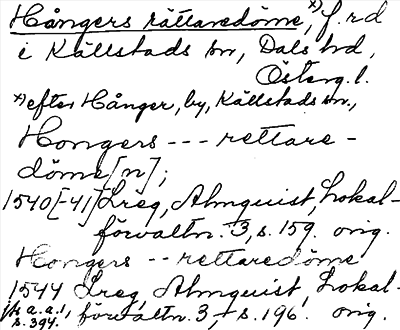 Hångers rättaredöme,x) f.rd
i Källstads sn, Dals hd,
Österg.l.
x) efter Hånger, by, Källstads sn.,
Hongers --- rettare-
döme[n];
1540[-41] Lreg, Almquist, Lokal-
förvaltn. 3, s. 159. orig.
Hongers -- rettaredöme
1544 Lreg, Almquist, Lokal-
förvaltn. 3, s. 196. orig.
a.a.1,
s. 394.